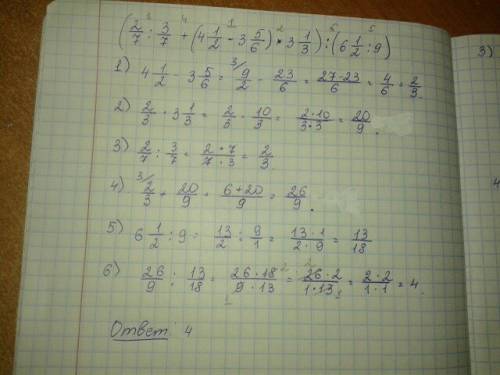 (2/7 : 3/7 + (4 1/2 - 3 5/6) • 3 1/3) : (6 1/2 : 9)
1) 4 1/2 - 3 5/6 = 9/2 - 23/6 = 27-23/6 = 4/6 = 2/3
2) 2/3 · 3 1/3 = 2/3 · 10/3 = 2·10/3·3 = 20/9.
3) 2/7 : 3/7 = 2·7/7·3 = 2/3
4) 2/3 + 20/9 = 6+20/9 = 26/9.
5) 6 1/2 : 9 = 13/2 : 9/1 = 13·1/2·9 = 13/18
6) 26/9 : 13/18 = 26·18/9·13 = 26·2/1·13 = 2·2/1·1 = 4.
Ответ 4
3)